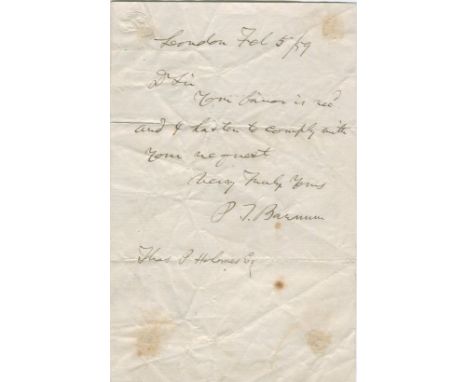 London Feb 5/59
Dr Sir
Your favor is recd
and I hasten to comply with
your request
Very Truly Yours
P. T. Barnum
Thos P Holmes Esq